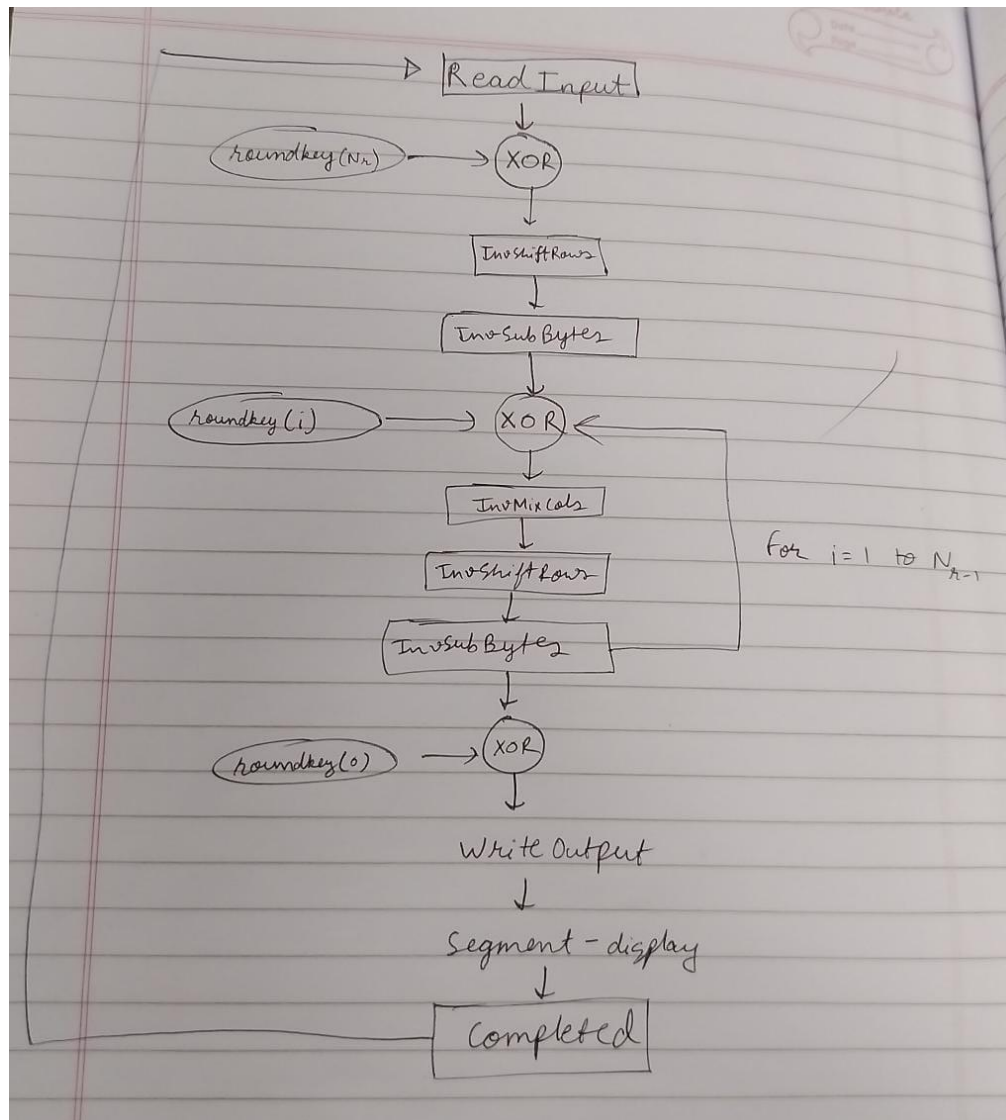 Read Input
roundkey(Nr)
XOR
InvShiftRows
InvSubBytes
roundkey(i)
XOR
InvMixCols
InvShiftRows
InvSubBytes
For i=1 to Nr-1
roundkey(0)
XOR
Write Output
Segment-display
Completed